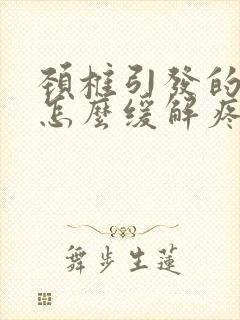 頚椎引發的
怎麼缓解疼
舞步生蓮